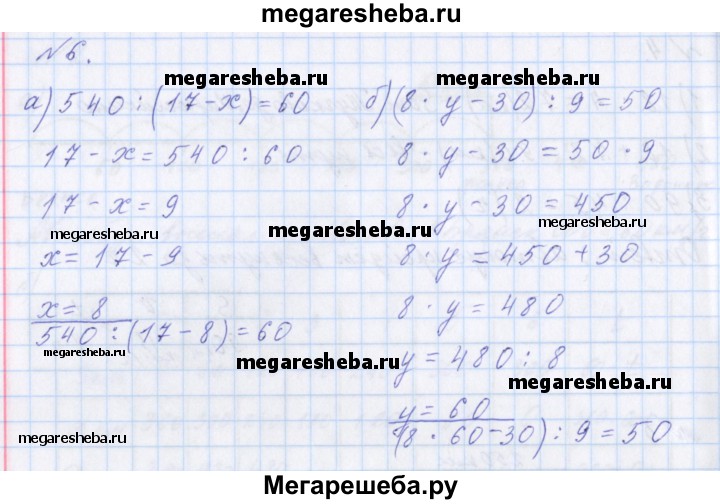 megaresheba.ru
№6.
megaresheba.ru
megaresheba.ru
а) 540 : (17 - x) = 60
17 - x = 540 : 60
17 - x = 9
megaresheba.ru
x = 17 - 9
x = 8
540 : (17 - 8) = 60
megaresheba.ru
megaresheba.ru
б) (8 · y - 30) : 9 = 50
8 · y - 30 = 50 · 9
8 · y - 30 = 450
megaresheba.ru
megaresheba.ru
8 · y = 450 + 30
8 · y = 480
y = 480 : 8
megaresheba.ru
megaresheba.ru
y = 60
(8 · 60 - 30) : 9 = 50
Мегарешеба.ру